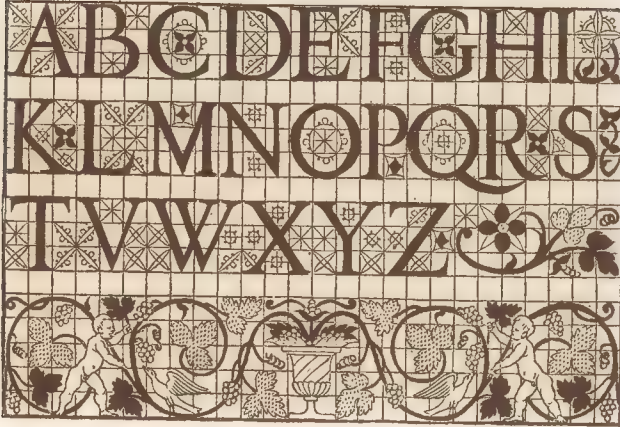 ABCDEFGHI
KLMNOPQRS
TVWXYZ